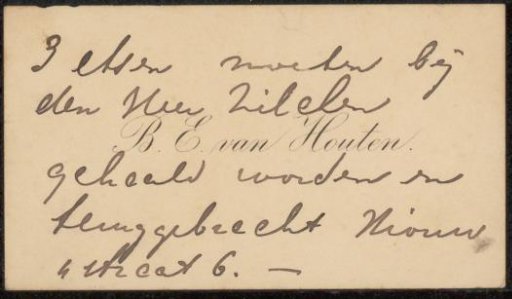 3 etsen moeten bij
den Heer Zilcken
B. E. van Houten.
gehaald worden en
teruggebracht Nieuw
straat 6. —